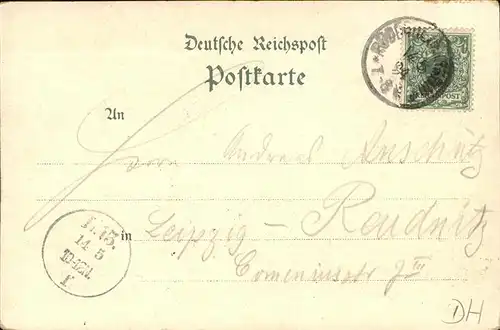 Deutsche Reichspost
Postkarte
An
Herrn Andreas Anschütz
in Leipzig - Reudnitz
Comeniusstr
14 5
DH